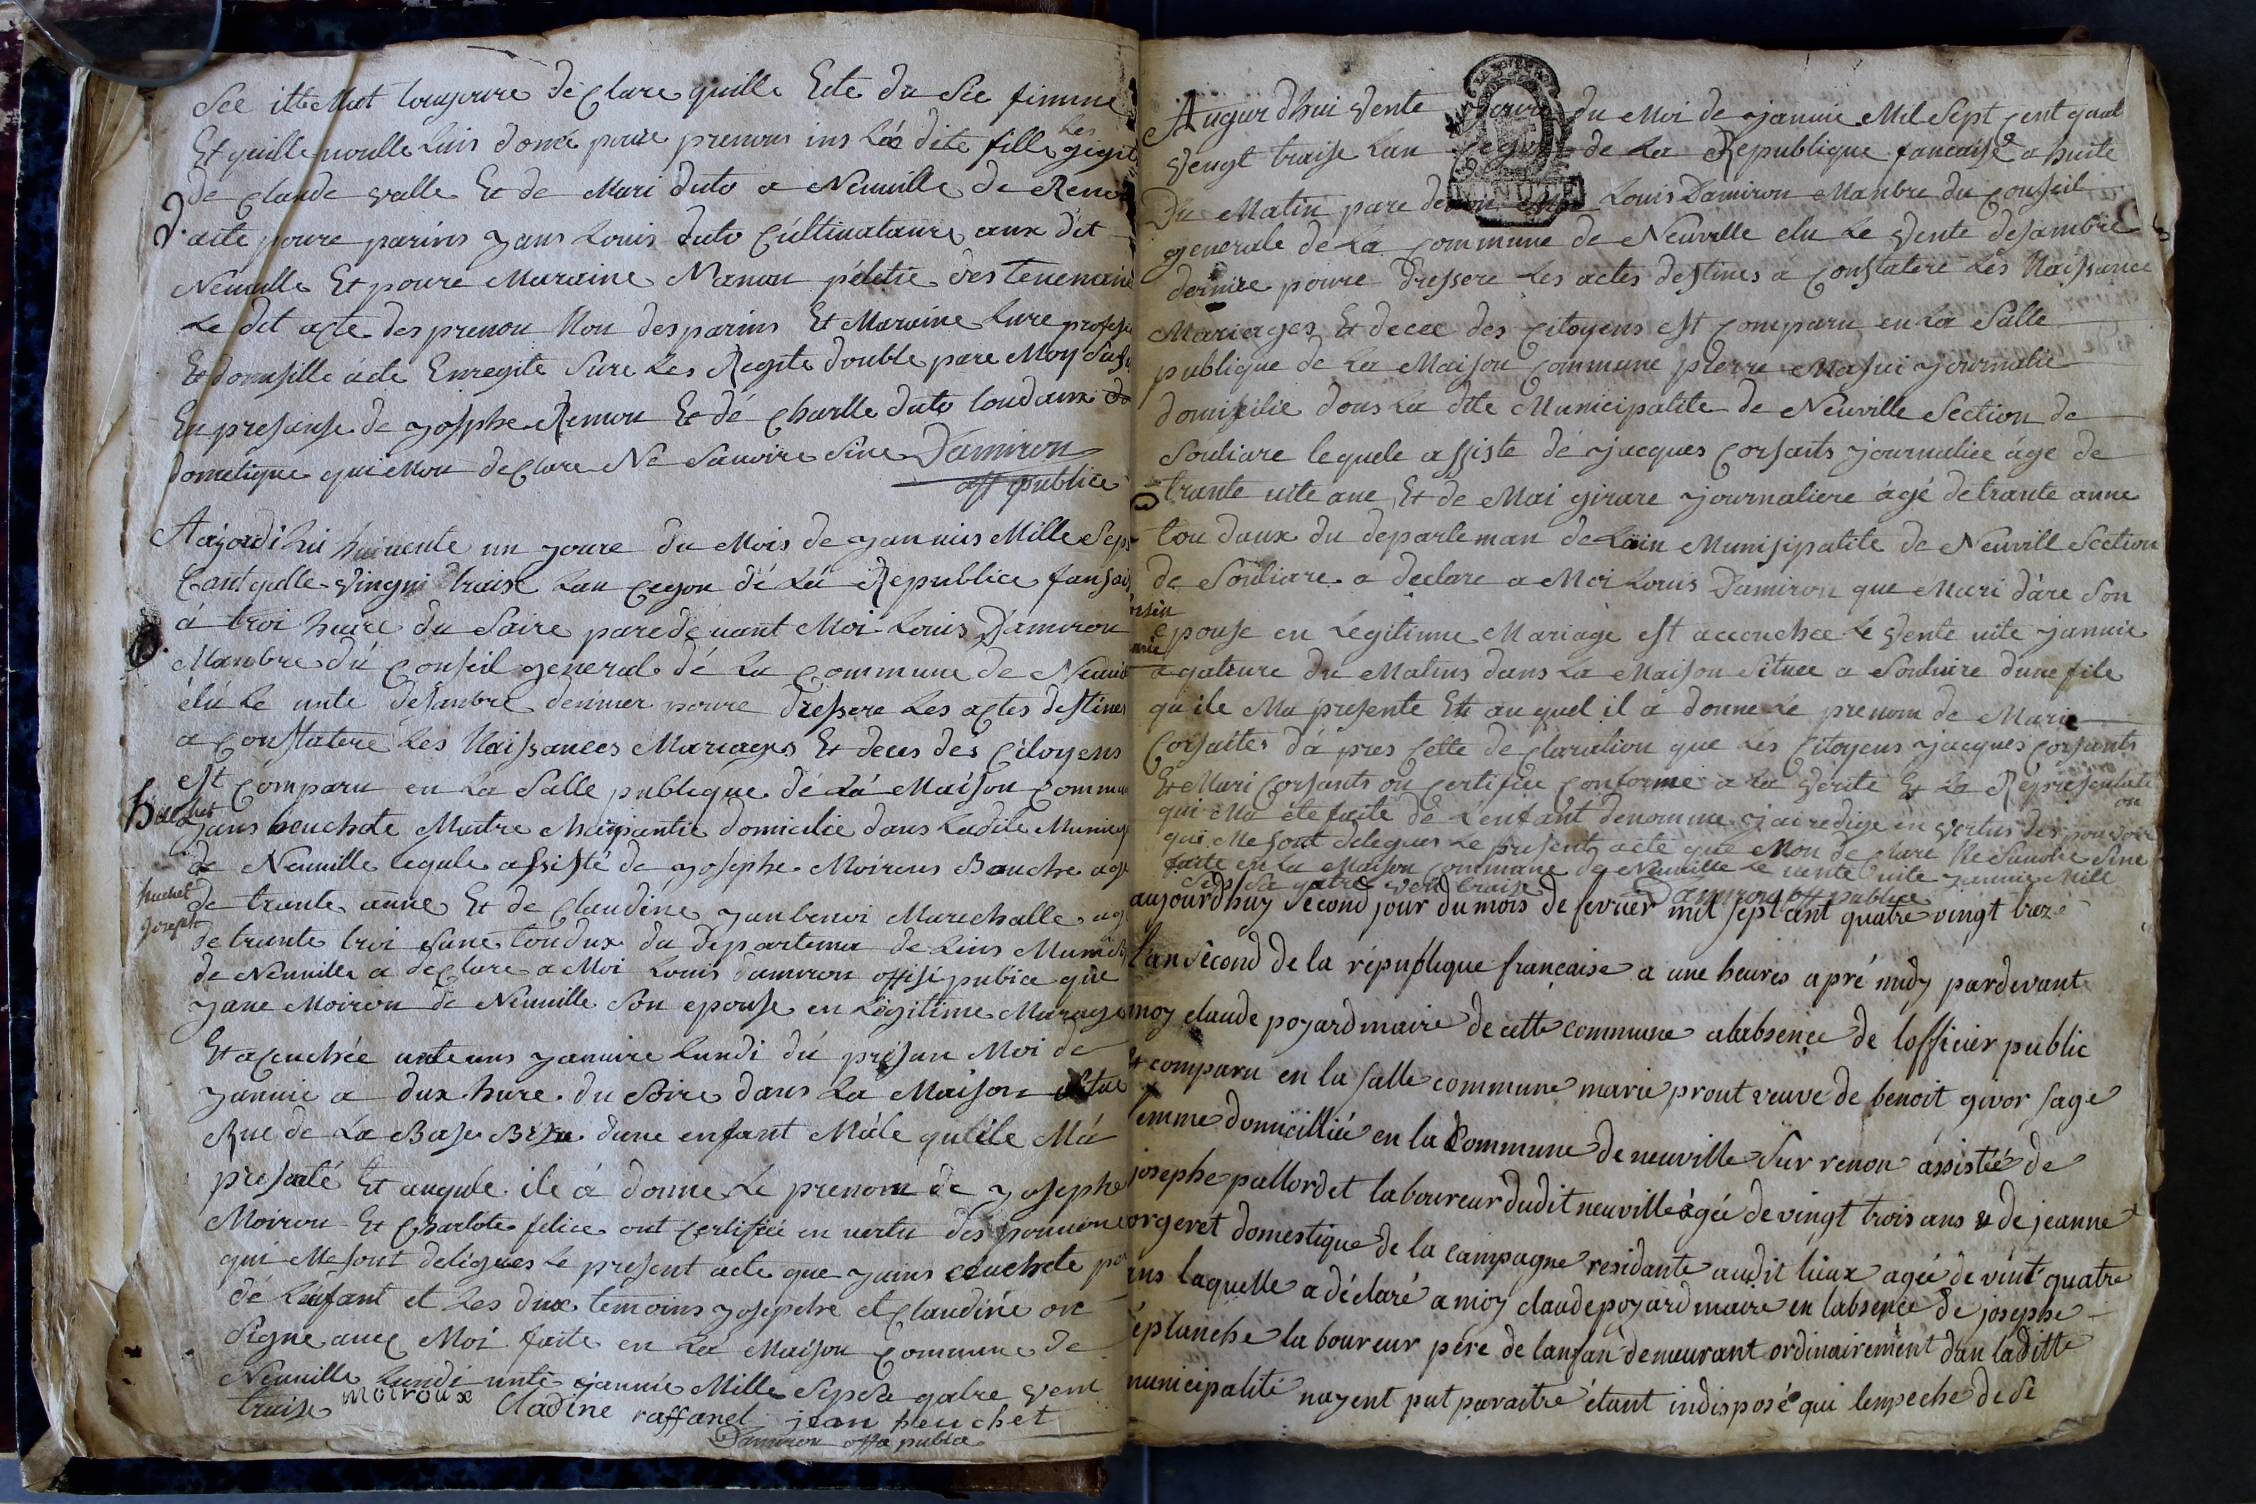 See itte Mot toujoure declare quille Ete du See fimme
Et quille noulle luis donné poure prenons ins Laé dite fille Les gigit
de claude valle Et de Mari duto a Neuville de Reno
D'aité poure parins yans Louis duto Cultinataure aux dit
Neuville Et poure Maraine Manon peletie des Tenemans
Le dit acte des prenou Nou des parins Et Maraine Lure profese
Et domisille acte Enregite Sure Les Regite double pare Moy
En presanse de yosphe Remon Et dé Charlle duto toudaux do
dometique qui Mon declare Ne Sauoire Sine Damiron
off publice
Aujourdihui ente un joure du Mois de januuis Mille Sept
Cant qatte vingni traise Lan cegon dé Lá Republice fansais
á troi huire du Saire paredeuant Moi Louis Damiron
Manbre dú Conseil general dé La Commune de Neuuil
élú Le unte desanbre dernier poure dressere Les actes destines
a Constatere Les Naissances Mariages Et deces des Citoyens
est comparu en La Salle publique dé Lá Maison Commun
Buchet
yans beuchote Maitre Charpantie domicilie dans Ladite Municip
de Neuuille lequle assisté de yosephe Moirous Bouche age
huchet
joseph
de trante anne Et de Claudine yanbenoi Marechalle ag
de trante troi Sane toudux du departema de Lins Munisi
de Neuuille a declare a Moi Louis damiron offisé pubice que
yane Moiron de Neuuille Son epouse en Légitime Marage
Et acouchée unteuns januire Lundi dú présan Moi de
januie a dux hure du Soire dans La Maison situe
Rue de La Base d'une enfant Mále qulile Má
presaté Et auqule ile á donne Le prenom de yosephe
Moirou Et Charlote felice ont certifiée en uertu des pouuoire
qui Mesont delégues Le présent acte que yains beuchote pe
dé Lénfant et Les dux témoins yosephe et Claudine on
Signe auec Moi faite en La Maison Commune de
Neuuille Lundi unte jannie Mille Sepsa qatre vent
traise Moiroux Cladine raffanel jean heuchet
Damiron offa public
Augur dhui vente joure du Moi de januie Mil Sept Cent quat
vengt traise Lan cegon de La Republique fancaise a huite
MINUTE
Du Matin pare devon Moi Louis Damiron Manbre du Conseil
generale de La Commune de Neuville elu Le vente desambre
dernire poure dressere Les actes destines á Constatere Les Naissance
Mariages Et decee des Citoyens est Comparu en La Salle
publique de La Maison Commune pierre Masui journalie
domisilie dons La dite Municipalite de Neuville Section de
Souliare lequele assiste dé jacques Corsants journaliee áge de
trante uite ane, Et de Mai girare journaliere ágé de trante anne
tou daux du departeman de Lain Munisipalite de Neuvill Section
de Souliare a declare a Moi Louis Damiron que Mari dáre Son
epouse en Legitime Mariage est accouchee Le vente uite januie
a gateure du Matins dans La Maison Situee a Souliaire dune file
qu'ile Ma presente Et au quel il á donne Lé prenom de Marie
Corsaites dá pres cette declaration que Les Citoyens jacques Corsants
Et Mari Corsants on Certifiee Conforme a La verite Et La Representati
on
qui Ma été faite de Lenfant denomme jai redige en vertus des pouvoire
qui Me sont delegues Le present acte que Mon declare Ne Sauoire Sine
faite en La Maison Commune de Neuuille Le uente uite januie Mill
Sepsa gatre vent traise Damiron off publice
aujourd'huy Second jour du mois de fevrier mil sept cant quatre vingt treze
l'an Second de la république française a une heures apré midy pardevant
moy claude poyard maire de cette commune a labsence de lofficier public
et comparu en la salle commune marie prout veuve de benoit givor sage
femme domicilliée en la Commune de neuville Sur renon assistée de
josephe pallordet laboureur dudit neuville agée de vingt trois ans & de jeanne
orgeret domestique de la campagne residante audit lieux agée de vint quatre
ans laquelle a déclaré a moy claude poyard maire en labsence de josephe
éplanche laboureur pére de lanfan demeurant ordinairement dan laditte
municipalité nayent put paraitre étant indisposé qui lempeche de se